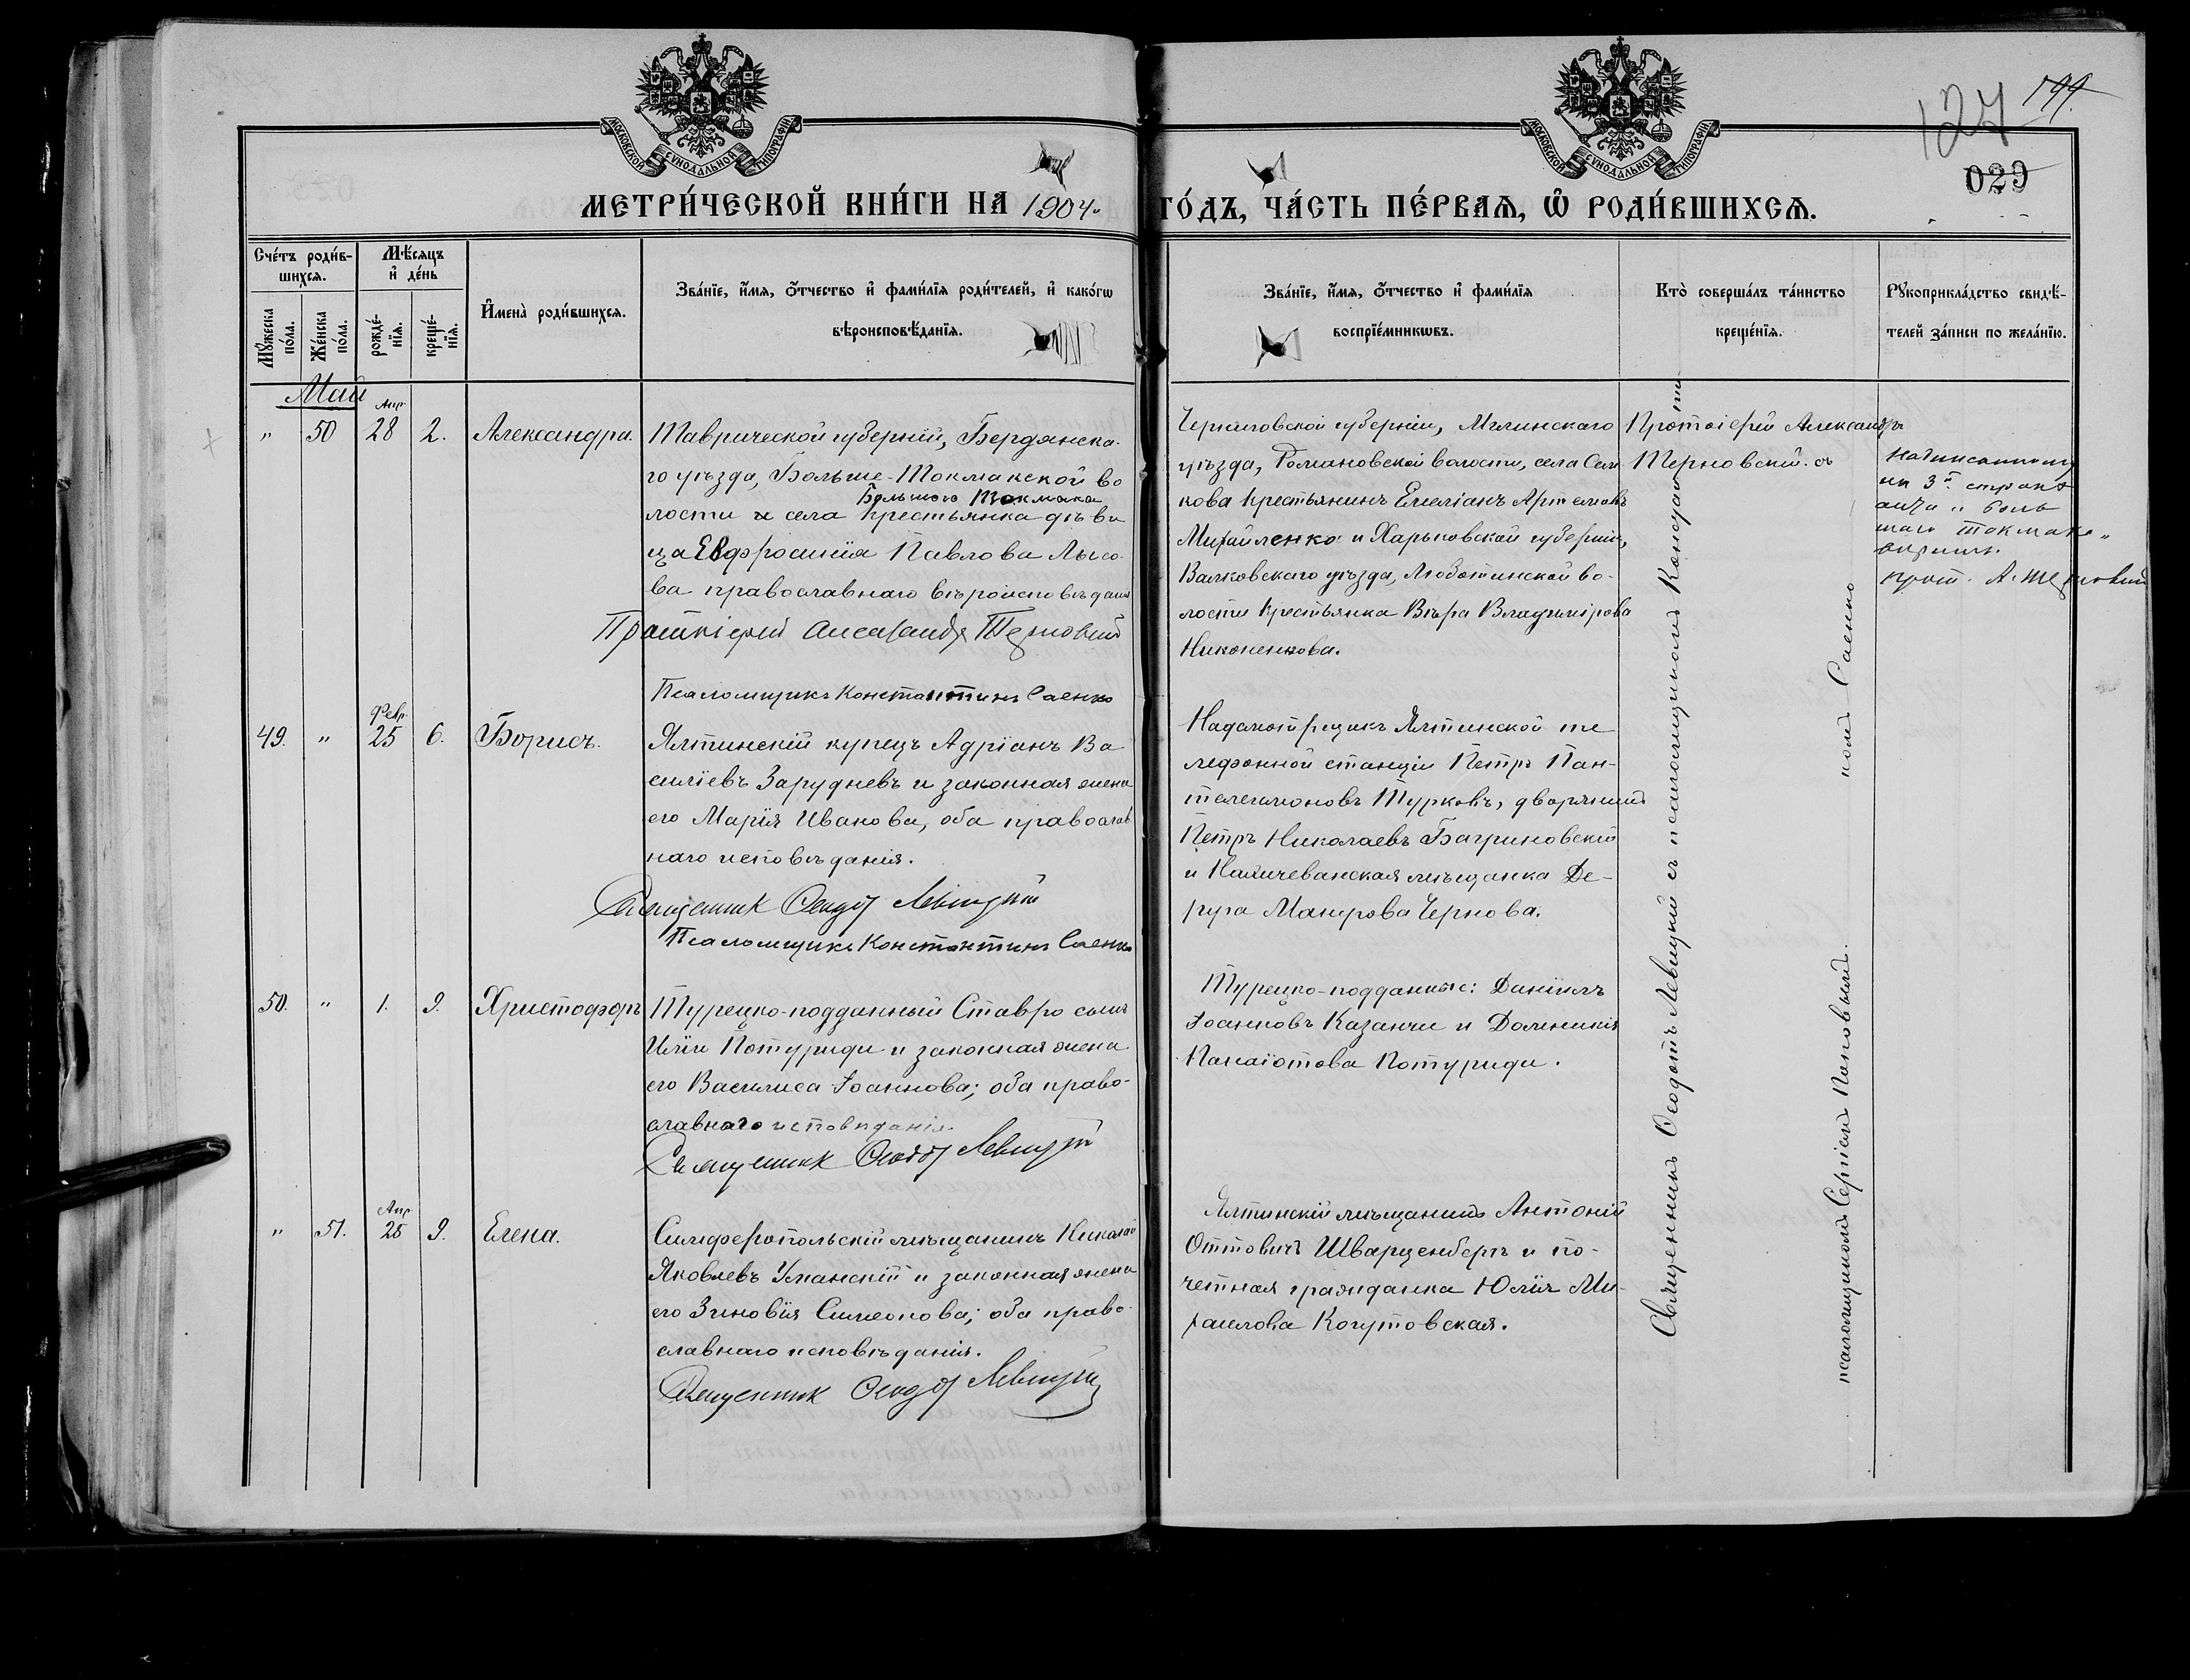 МОСКОВСКОЙ СѴНОДАЛЬНОЙ ТИПОГРАФІИ
МОСКОВСКОЙ СѴНОДАЛЬНОЙ ТИПОГРАФІИ
127
029
МЕТРИ́ЧЕСКОЙ КНИ́ГИ НА 1904. ГО́ДЪ, ЧА́СТЬ ПЕ́РВАѦ, Ѡ҆ РОДИ́ВШИХСѦ.
Сче́тъ роди́в-
шихсѧ.
Мꙋ́жеска по́ла.
Же́нска по́ла.
Мѣ́сяцъ и҆ де́нь
рожде́-нїѧ.
креще́-нїѧ.
И҆мена̀ роди́вшихсѧ.
Зва́нїе, и҆́мѧ, ѻ҆́тчество и҆ фами́лїѧ роди́телей, и҆ како́гѡ
вѣроисповѣ́данїѧ.
Зва́нїе, и҆́мѧ, ѻ҆́тчество и҆ фами́лїѧ
воспрїе́мникѡвъ.
Кто̀ соверша́лъ та́инство
креще́нїѧ.
Рꙋкоприкла́дство свидѣ́-
телей за́писи по жела́нїю.
Май
" 50 Апр. 28 2. Александра.
Таврической губерніи, Бердянска-
го уѣзда, Больше-Токмакской во
Большого Токмака
лости и села крестьянка дѣви
ца Евфросинія Павлова Лысо-
ва православнаго вѣроисповѣданія
Протоіерей Александръ Терновскій
Псаломщикъ Константинъ Саенко
Черниговской губерніи, Мглинскаго
уѣзда, Романовской волости, села Сель
кова крестьянинъ Емеліанъ Артемовъ
Михайленко и Харьковской губерніи,
Валковскаго уѣзда, Люботинской во-
лости крестьянка Вѣра Владимірова
Никоненкова.
Протоіерей Александръ
Терновскій съ
псаломщикомъ Константи
номъ Саенко
надписанному
на 3й строкѣ
"Боль
шаго Токмака"
вѣрить.
прот. А. Терновскій
49. " Февр. 25 6. Борисъ.
Ялтинскій купецъ Адріанъ Ва
силіевъ Зарудневъ и законная жена
его Марія Иванова, оба православ
наго исповѣданія.
Священникъ Ѳеодотъ Левицкій
Псаломщикъ Константинъ Саенко
Надсмотрщикъ Ялтинской те
лефонной станціи Петръ Пан-
телеимоновъ Турковъ, дворянинъ
Петръ Николаевъ Багриновскій
и Нахичеванская мѣщанка Де-
Чернова.
Священникъ Ѳеодотъ Левицкій съ
псаломщикомъ Сергіемъ Поповымъ.
50. " 1. 9. Христофоръ
Турецко-подданный Ставро сынъ
Иліи Потуриди и законная жена
его Василиса Іоаннова; оба право-
славнаго исповѣданія.
Священникъ Ѳеодотъ Левицкій
Турецко-подданные: Даніилъ
Іоанновъ Казанчи и Доминикія
Панаіотова Потуриди.
" 51. Апр. 25 9. Елена.
Симферопольскій мѣщанинъ Николай
Яковлевъ Уманскій и законная жена
его Зиновія Симеонова; оба право-
славнаго исповѣданія.
Священникъ Ѳеодотъ Левицкій
Ялтинскій мѣщанинъ Антоній
Оттовичъ Шварценбергъ и по-
четная гражданка Юлія Ми-
хаилова Когутовская.